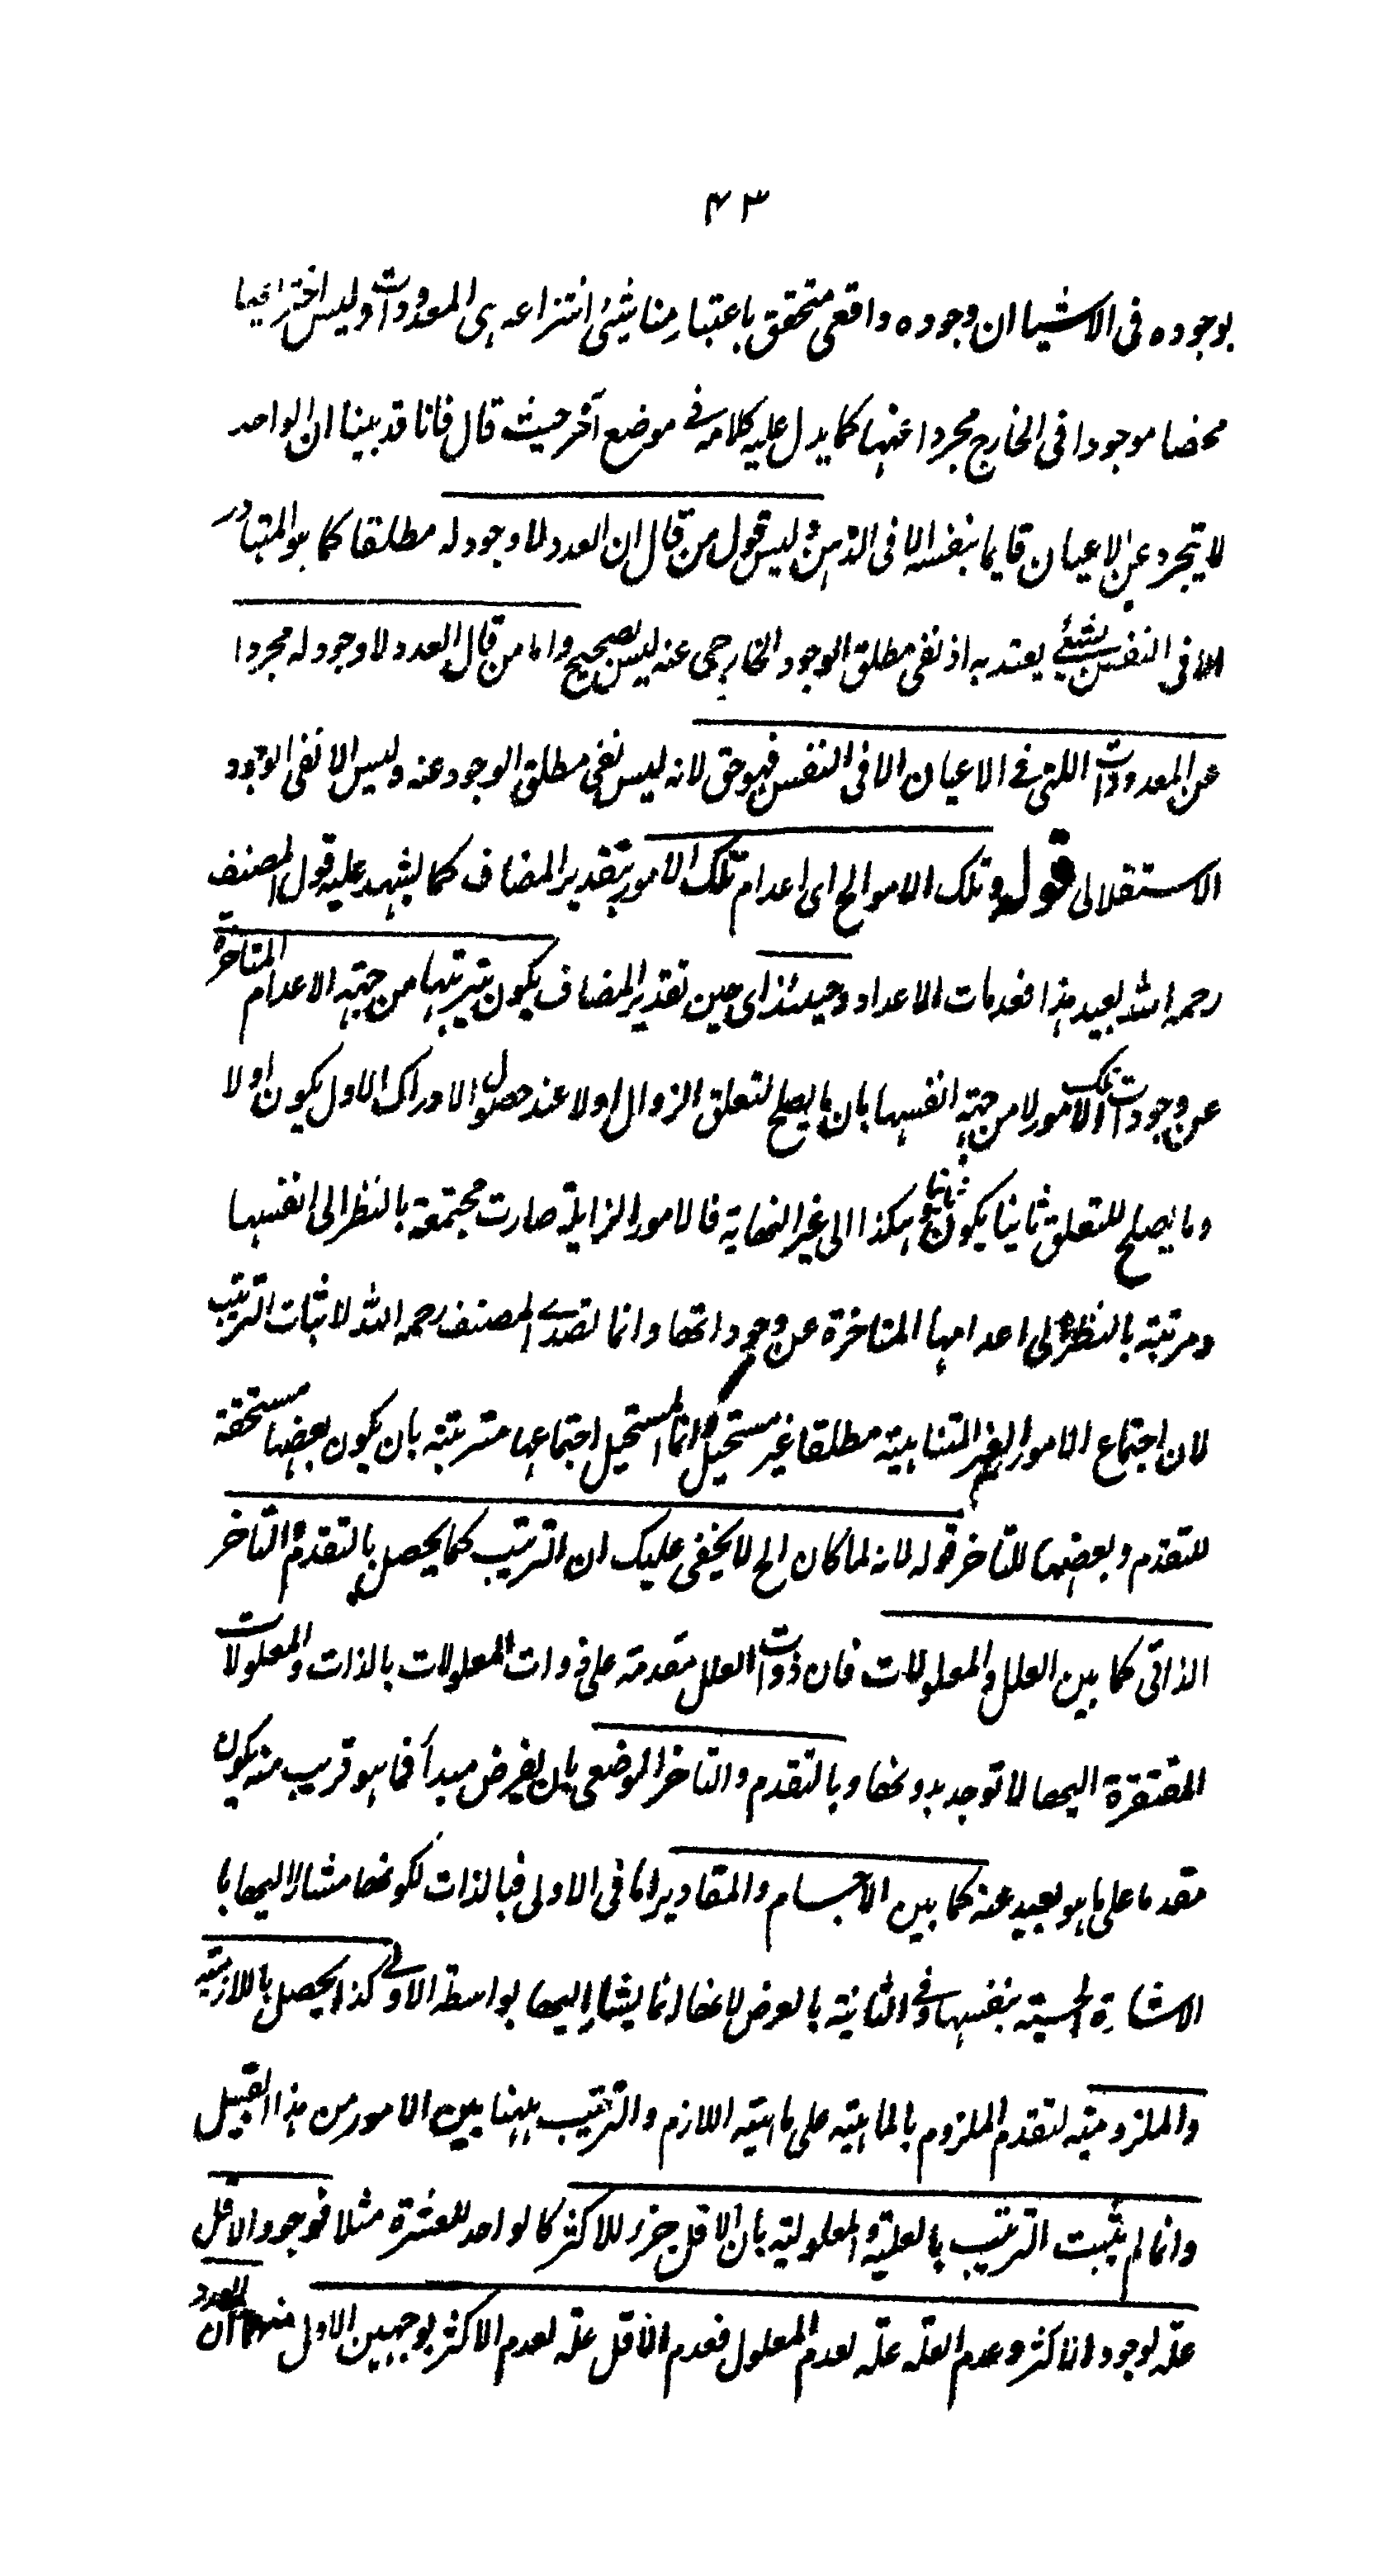 ٤٣
بوجوده فى الاشيا ان وجوده واقعى متحقق باعتبار مناشئ انتزاعه هى المعدودات وليس اختراعيا
محضا موجودا فى الخارج مجردا عنها كما يدل عليه كلامه فى موضع آخر حيث قال فانا قد بينا ان الواحد
لا يتجرد عن الاعيان قايما بنفسه الا فى الذهن وليس قول من قال ان العدد لا وجود له مطلقا كما هو المتبادر
الا فى النفس بشئ يعتد به اذ نفى مطلق الوجود الخارجى عنه ليس بصحيح واما من قال العدد لا وجود له مجردا
عن المعدودات اللتى فى الاعيان الا فى النفس فهو حق لانه ليس نفى مطلق الوجود عنه وليس الا نفى الوجود
الاستقلالى قوله وتلك الامور الخ اى اعدام تلك الامور بتقدير المضاف كما يشهد عليه قول المصنف
رحمه الله بعيد هذا فعدمات الاعداد وحينئذ اى حين تقدير المضاف يكون ترتيبها من جهة الاعدام المتاخرة
عن وجودات تلك الامور لا من جهة انفسها بان ما يصلح لتعلق الزوال اولا عند حصول الادراك الاول يكون اولا
وما يصلح للتعلق ثانيا يكون ثانيا وهكذا الى غير النهاية فالامور الزايلة صارت مجتمعة بالنظر الى انفسها
ومرتبة بالنظر الى اعدامها المتاخرة عن وجوداتها وانما تصدى المصنف رحمه الله لاثبات الترتيب
لان اجتماع الامور الغير المتناهية مطلقا غير مستحيل وانما المستحيل اجتماعها مترتبة بان يكون بعضها مستحقة
للتقدم وبعضها للتاخر قوله لانه لما كان الخ لا يخفى عليك ان الترتيب كما يحصل بالتقدم والتاخر
الذاتى كما بين العلل والمعلولات فان ذوات العلل متقدمة على ذوات المعلولات بالذات والمعلولات
المفتقرة اليها لا توجد بدونها وبالتقدم والتاخر الوضعى بان يفرض مبدأ فما هو قريب منه يكون
مقدما على ما هو بعيد عنه كما بين الاجسام والمقادير اما فى الاولى فبالذات لكونها مشارا اليها با
لاشارة الحسية بنفسها وفى الثانية بالعرض لانها انما يشار اليها بواسطة الاولى كذا يحصل باللازمية
والملزومية لتقدم الملزوم بالماهية على ماهية اللازم والترتيب ههنا بين الامور من هذا القبيل
وانما لم يثبت الترتيب بالعلية والمعلولية بان الاقل جزء للاكثر كالواحد للعشرة مثلا فوجود الاقل
علة لوجود الاكثر وعدم العلة علة لعدم المعلول فعدم الاقل علة لعدم الاكثر بوجهين الاول منهما ان العدد